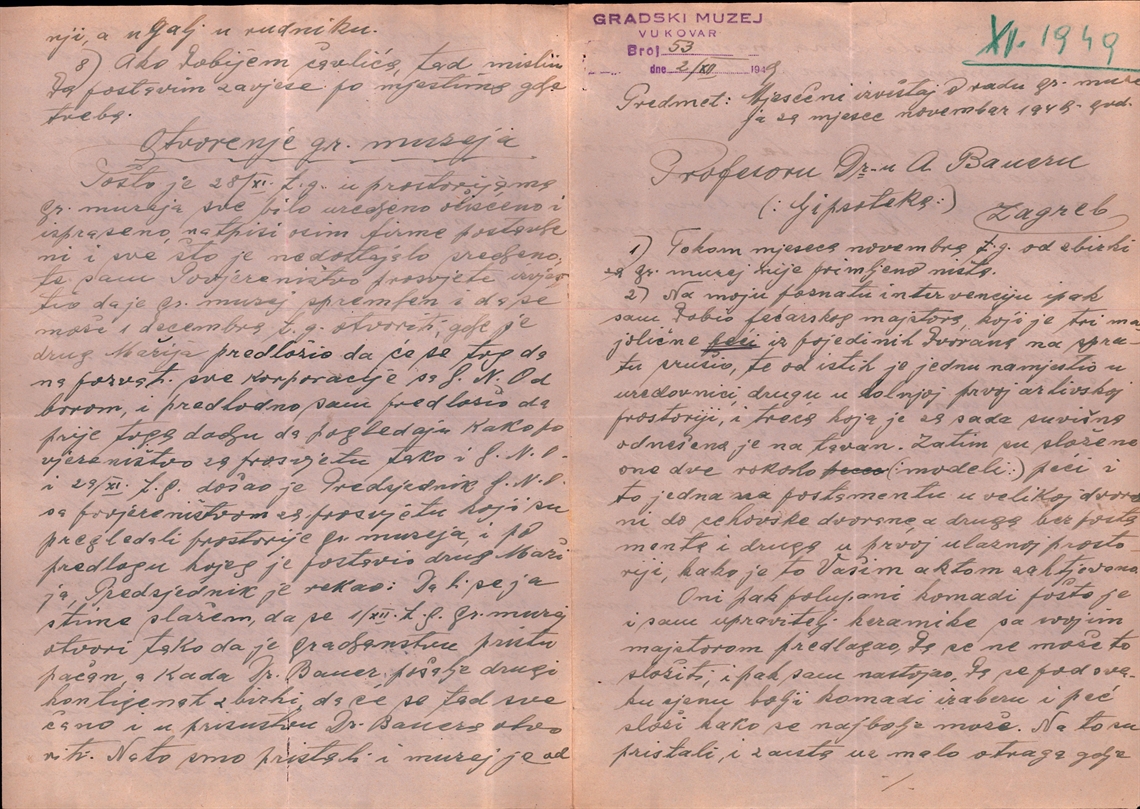 nji, a ugalj u rudniku.
8) Ako dobijem čavlića, tad mislim
da postavim zavjese po mjestima gdje
treba.
Otvorenje gr. muzeja
Pošto je 28/XI. t.g. u prostorijama
gr. muzeja sve bilo uredjeno očišćeno i
isprašeno, natpisi osim firme postavlje
ni i sve što je nedostajalo uredjeno,
te sam Povjereništvo prosvjete izvjes
tio da je gr. muzej spremljen i da se
može 1 decembra t.g. otvoriti, gdje je
drug Mažija predložio da će se tog da
na pozvati sve korporacije sa G. N. Od
borom, i predhodno sam predložio da
prije toga dodju da pogledaju kako po
vjereništvo za prosvjetu tako i G. N. O.
i 29/XI. t.g. došao je Predsjednik G. N. O.
sa povjereništvom za prosvjetu koji su
pregledali prostorije gr. muzeja, i po
predlogu kojeg je postavio drug Maži
ja, Predsjednik je rekao: Da li se ja
s time slažem, da se 1/XII. t.g. gr. muzej
otvori tako da je gradjanstvu pristu
pačan, a kada Dr. Bauer pošalje drugi
kontigenat zbirki, da će se tad sve
čano i u prisustvu Dr. Bauera otvo
riti. Na to smo pristali i muzej je od
GRADSKI MUZEJ
VUKOVAR
Broj 53
dne 2/XII 1949
XI. 1949
Predmet: Mjesečni izvještaj o radu gr. muze
ja za mjesec novembar 1949. god.
Profesoru Dr-u A. Baueru
(: Gipsoteka :) Zagreb
1) Tokom mjeseca novembra t.g. od zbirki
za gr. muzej nije primljeno ništa.
2) Na moju poznatu intervenciju ipak
sam dobio pećarskog majstora, koji je tri ma
jolične peći iz pojedinih dvorana na spra-
tu srušio, te od istih je jednu namjestio u
uredovnici, drugu u dolnjoj prvoj arhivskoj
prostoriji, i treća koja je za sada suvišna
odnešena je na tavan. Zatim su složene
one dve rokoko (: modeli :) peći i
to jedna na postamentu u velikoj dvora
ni do cehovske dvorane a druga bez posta
menta i druga u prvoj ulaznoj prosto
riji, kako je to Vašim aktom zahtjevano.
Oni pak polupani komadi pošto je
i sam upravitelj keramike sa svojim
majstorom predlagao, da se ne može to
složiti, i ipak sam nastojao, da se pod sva
ku cjenu bolji komadi izaberu i peć
složi kako se najbolje može. Na to su
pristali, i zaista uz malo otraga gdje
./.